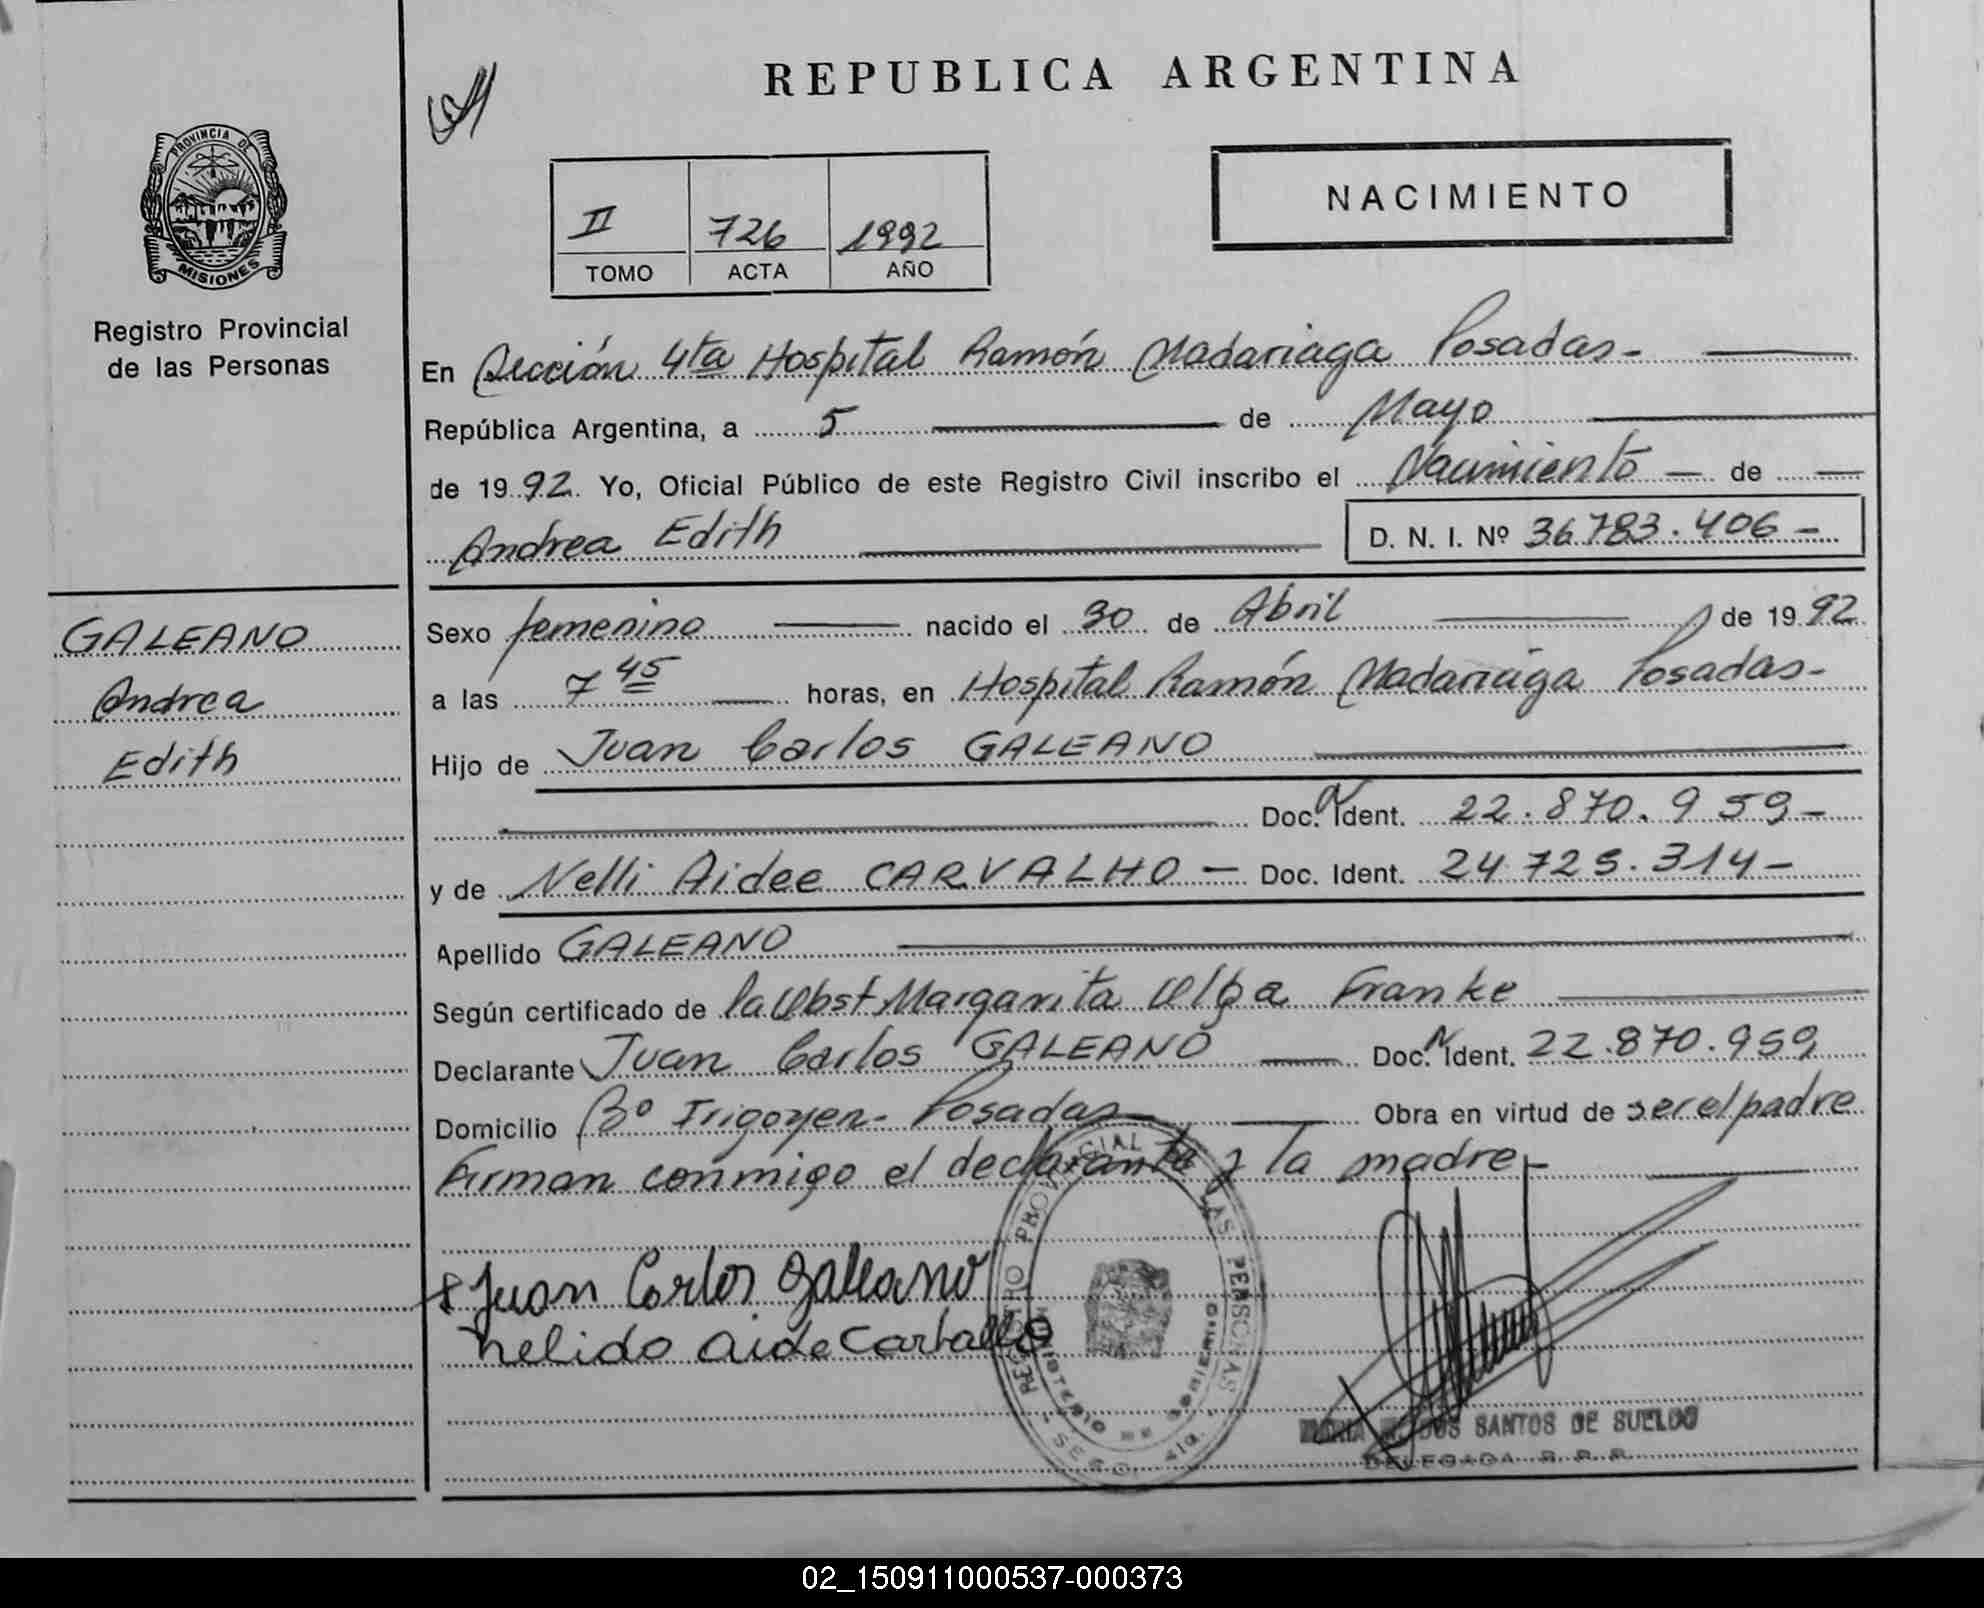 REPUBLICA ARGENTINA
PROVINCIA DE
MISIONES
Registro Provincial
de las Personas
II 726 1992
TOMO ACTA AÑO
NACIMIENTO
En Sección 4ta Hospital Ramón Madariaga Posadas-
República Argentina, a 5 de Mayo
de 1992. Yo, Oficial Público de este Registro Civil inscribo el Nacimiento de
Andrea Edith D. N. I. Nº 36.783.406-
GALEANO
Andrea
Edith
Sexo femenino nacido el 30 de Abril de 1992
a las 7 45 horas, en Hospital Ramón Madariaga Posadas-
Hijo de Juan Carlos GALEANO
Doc. Ident. 22.870.959-
y de Nelli Aidee CARVALHO - Doc. Ident. 24.725.314-
Apellido GALEANO
Según certificado de la Obst. Margarita Olga Franke
Declarante Juan Carlos GALEANO Doc. Ident. 22.870.959
Domicilio Bº Irigoyen- Posadas Obra en virtud de ser el padre
Firman conmigo el declarante y la madre-
Juan Carlos Galeano
nelido aide Carballo
REGISTRO PROVINCIAL LAS PERSONAS
MINISTERIO DE GOBIERNO
DOS SANTOS DE SUELDO
DELEGADA R. R. P.
02_150911000537-000373